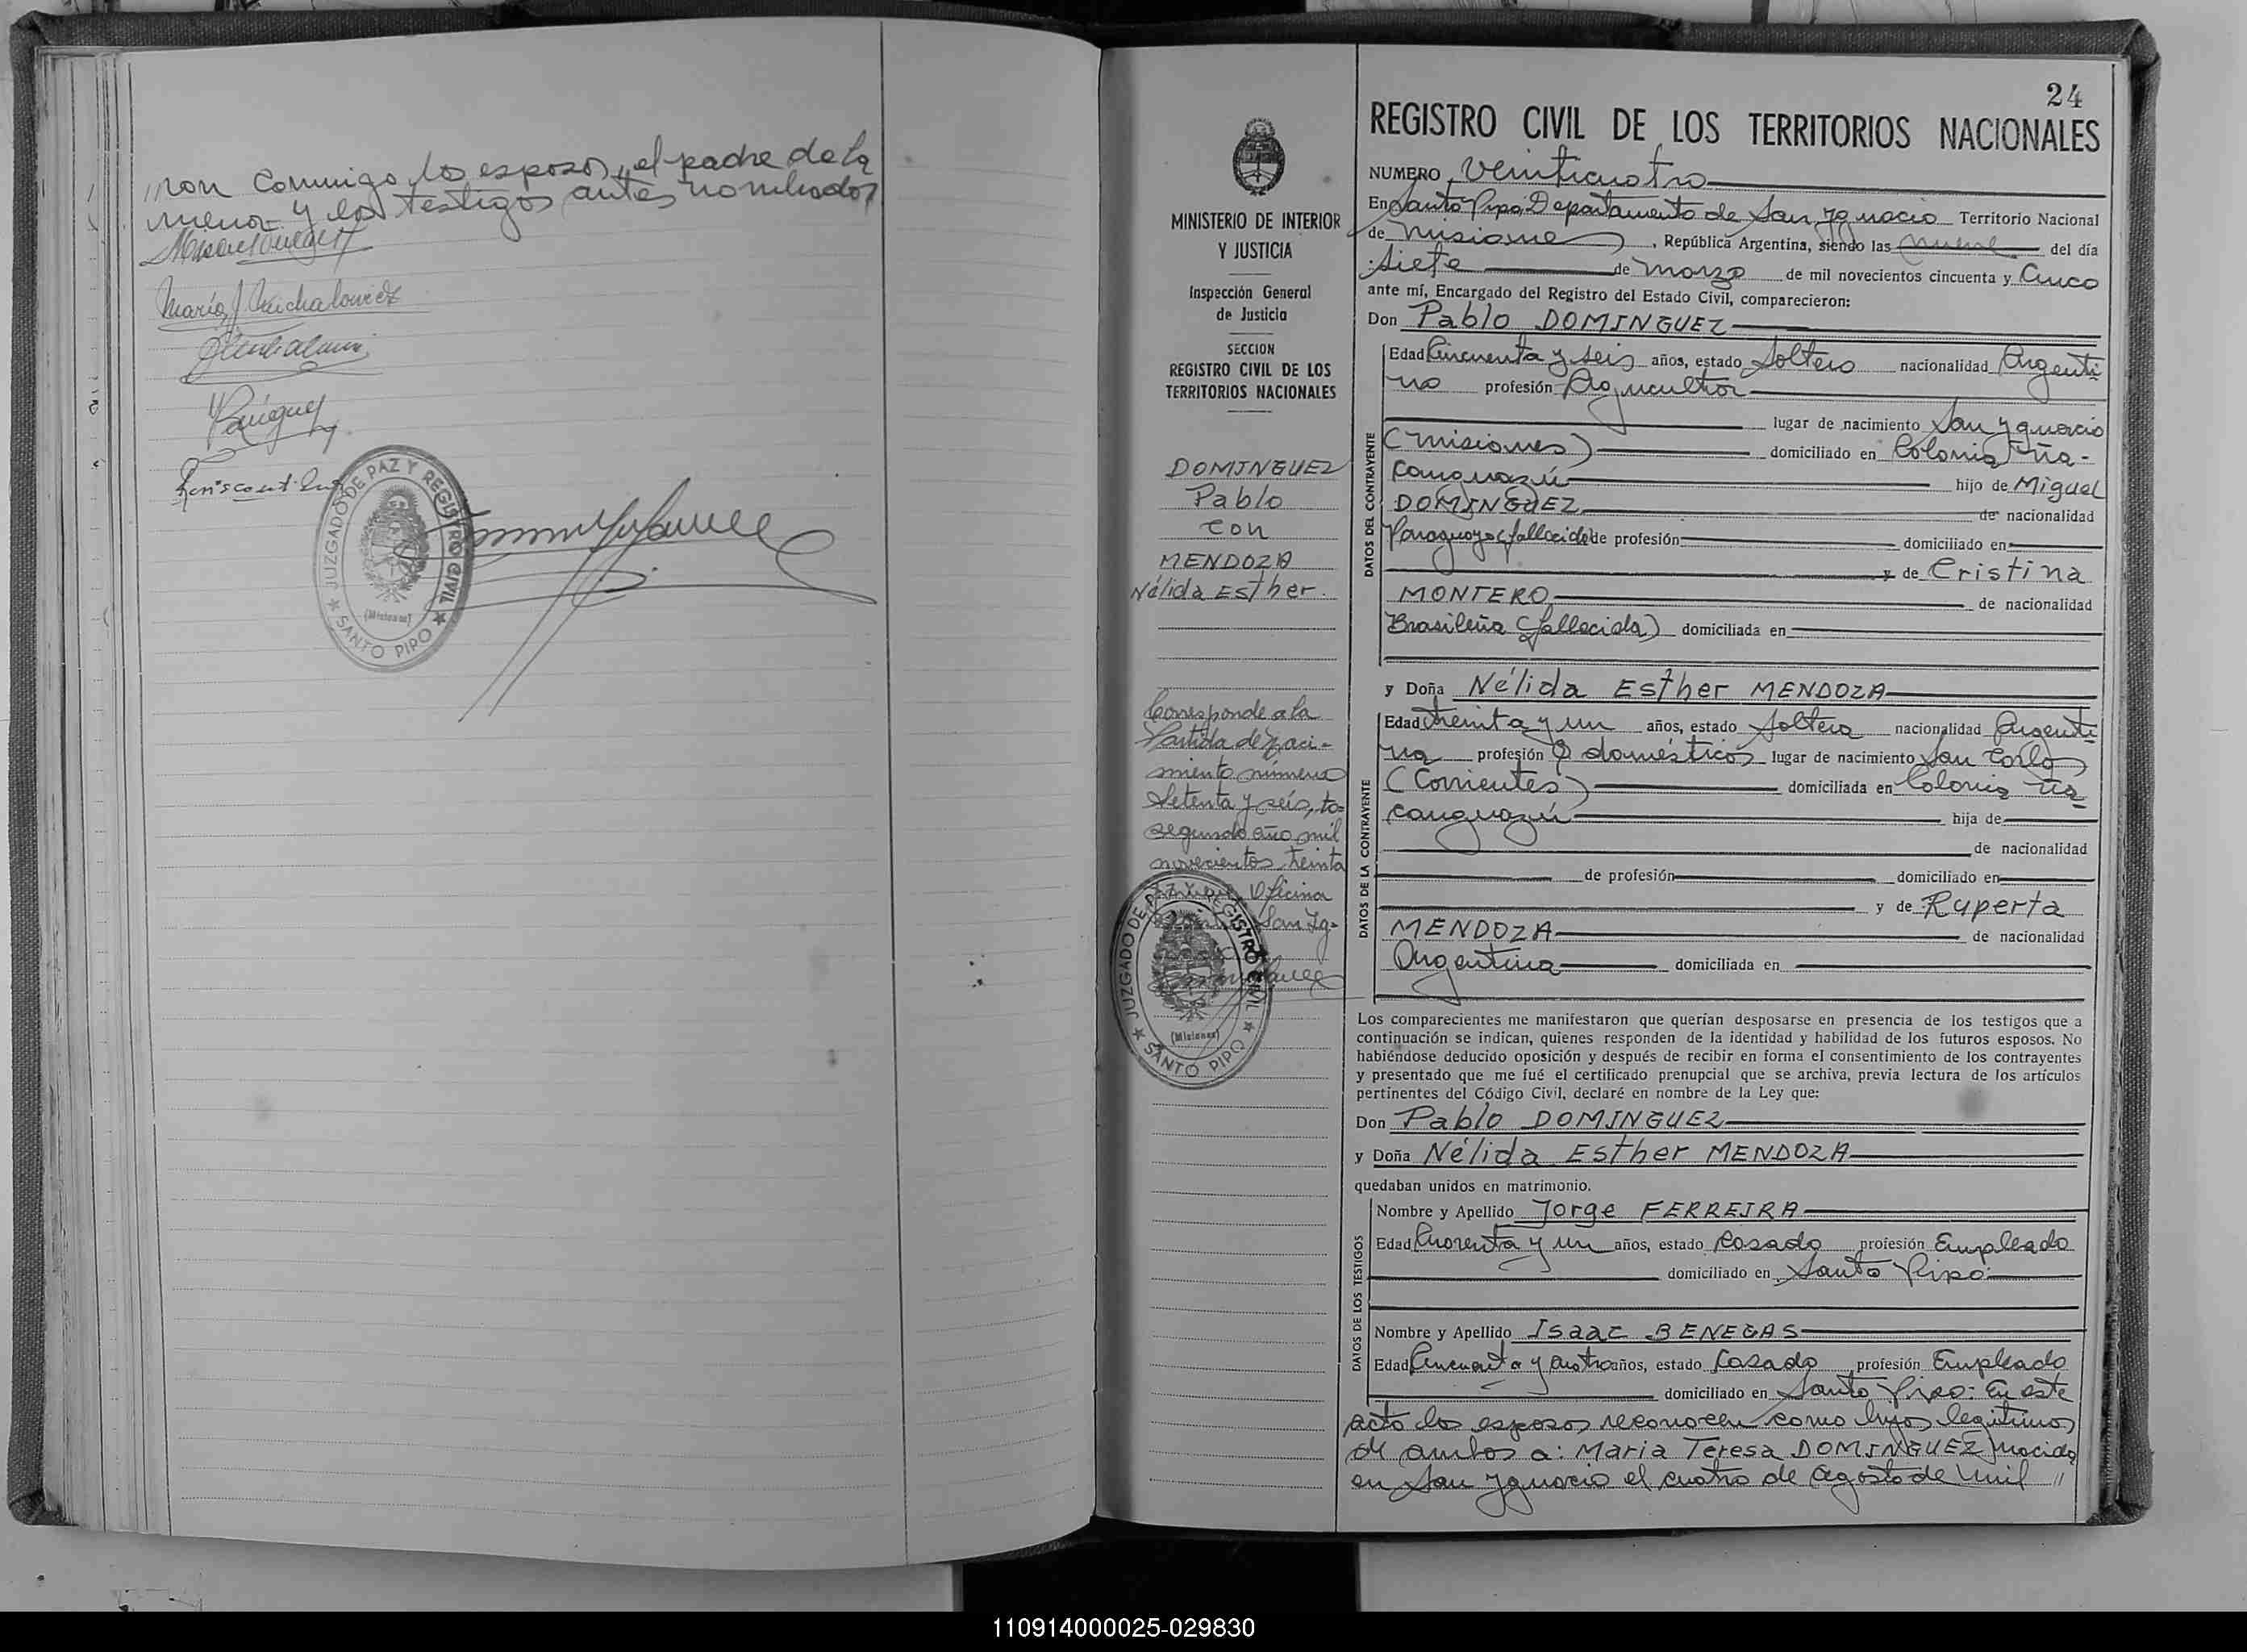 //ron conmigo los esposos, el padre de la
menor y los testigos antes nombrados
María J Michalowicz
JUZGADO DE PAZ Y REGISTRO CIVIL
(Misiones)
★ SANTO PIPO ★
24
REGISTRO CIVIL DE LOS TERRITORIOS NACIONALES
MINISTERIO DE INTERIOR
Y JUSTICIA
Inspección General
de Justicia
SECCION
REGISTRO CIVIL DE LOS
TERRITORIOS NACIONALES
DOMINGUEZ
Pablo
con
MENDOZA
Nélida Esther.
Corresponde a la
Partida de naci-
miento número
setenta y seis, to-
segundo año mil
novecientos treinta
Oficina
San Ig-
JUZGADO DE PAZ Y REGISTRO CIVIL
(Misiones)
★ SANTO PIPO ★
NUMERO Veinticuatro
En Santo Pipó, Departamento de San Ygnacio Territorio Nacional
de Misiones, República Argentina, siendo las nueve del día
siete de marzo de mil novecientos cincuenta y cinco
ante mí, Encargado del Registro del Estado Civil, comparecieron:
Don Pablo DOMINGUEZ
DATOS DEL CONTRAYENTE
Edad Cincuenta y seis años, estado soltero nacionalidad Argenti-
no profesión Agricultor
lugar de nacimiento San Ygnacio
(Misiones) domiciliado en Colonia Ña-
canguazú hijo de Miguel
DOMINGUEZ de nacionalidad
Paraguayo (fallecido) de profesión domiciliado en
y de Cristina
MONTERO de nacionalidad
Brasileña (fallecida) domiciliada en
y Doña Nélida Esther MENDOZA
DATOS DE LA CONTRAYENTE
Edad treinta y un años, estado soltera nacionalidad Argenti-
na profesión Q domésticos lugar de nacimiento San Carlos
(Corrientes) domiciliada en Colonia Ña-
canguazú hija de
de nacionalidad
de profesión domiciliado en
y de Ruperta
MENDOZA de nacionalidad
Argentina domiciliada en
Los comparecientes me manifestaron que querían desposarse en presencia de los testigos que a
continuación se indican, quienes responden de la identidad y habilidad de los futuros esposos. No
habiéndose deducido oposición y después de recibir en forma el consentimiento de los contrayentes
y presentado que me fué el certificado prenupcial que se archiva, previa lectura de los artículos
pertinentes del Código Civil, declaré en nombre de la Ley que:
Don Pablo DOMINGUEZ
y Doña Nélida Esther MENDOZA
quedaban unidos en matrimonio.
DATOS DE LOS TESTIGOS
Nombre y Apellido Jorge FERREIRA
Edad Cuarenta y un años, estado casado profesión Empleado
domiciliado en Santo Pipó
Nombre y Apellido Isaac BENEGAS
Edad Cincuenta y cuatro años, estado casado profesión Empleado
domiciliado en Santo Pipó: En este
acto los esposos reconocen como hijos legítimos
de ambos a: Maria Teresa DOMINGUEZ nacida
en San Ygnacio el cuatro de Agosto de mil //
110914000025-029830